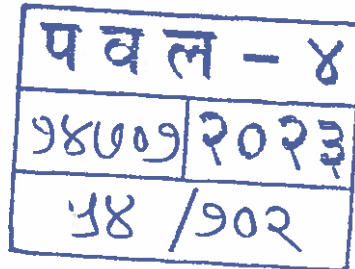 पवल - ४
१४७०१ २०२३
५४ /१०२